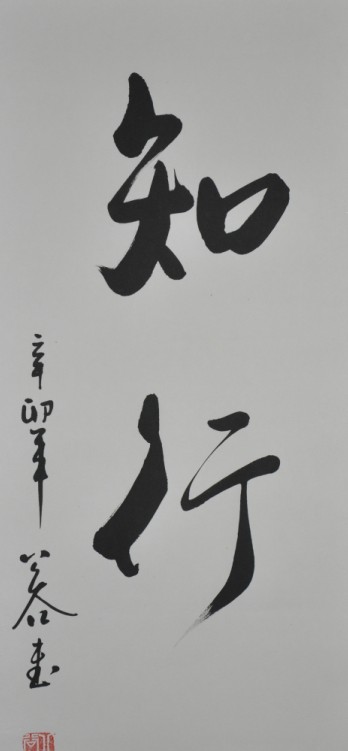 知行
辛卯年
书